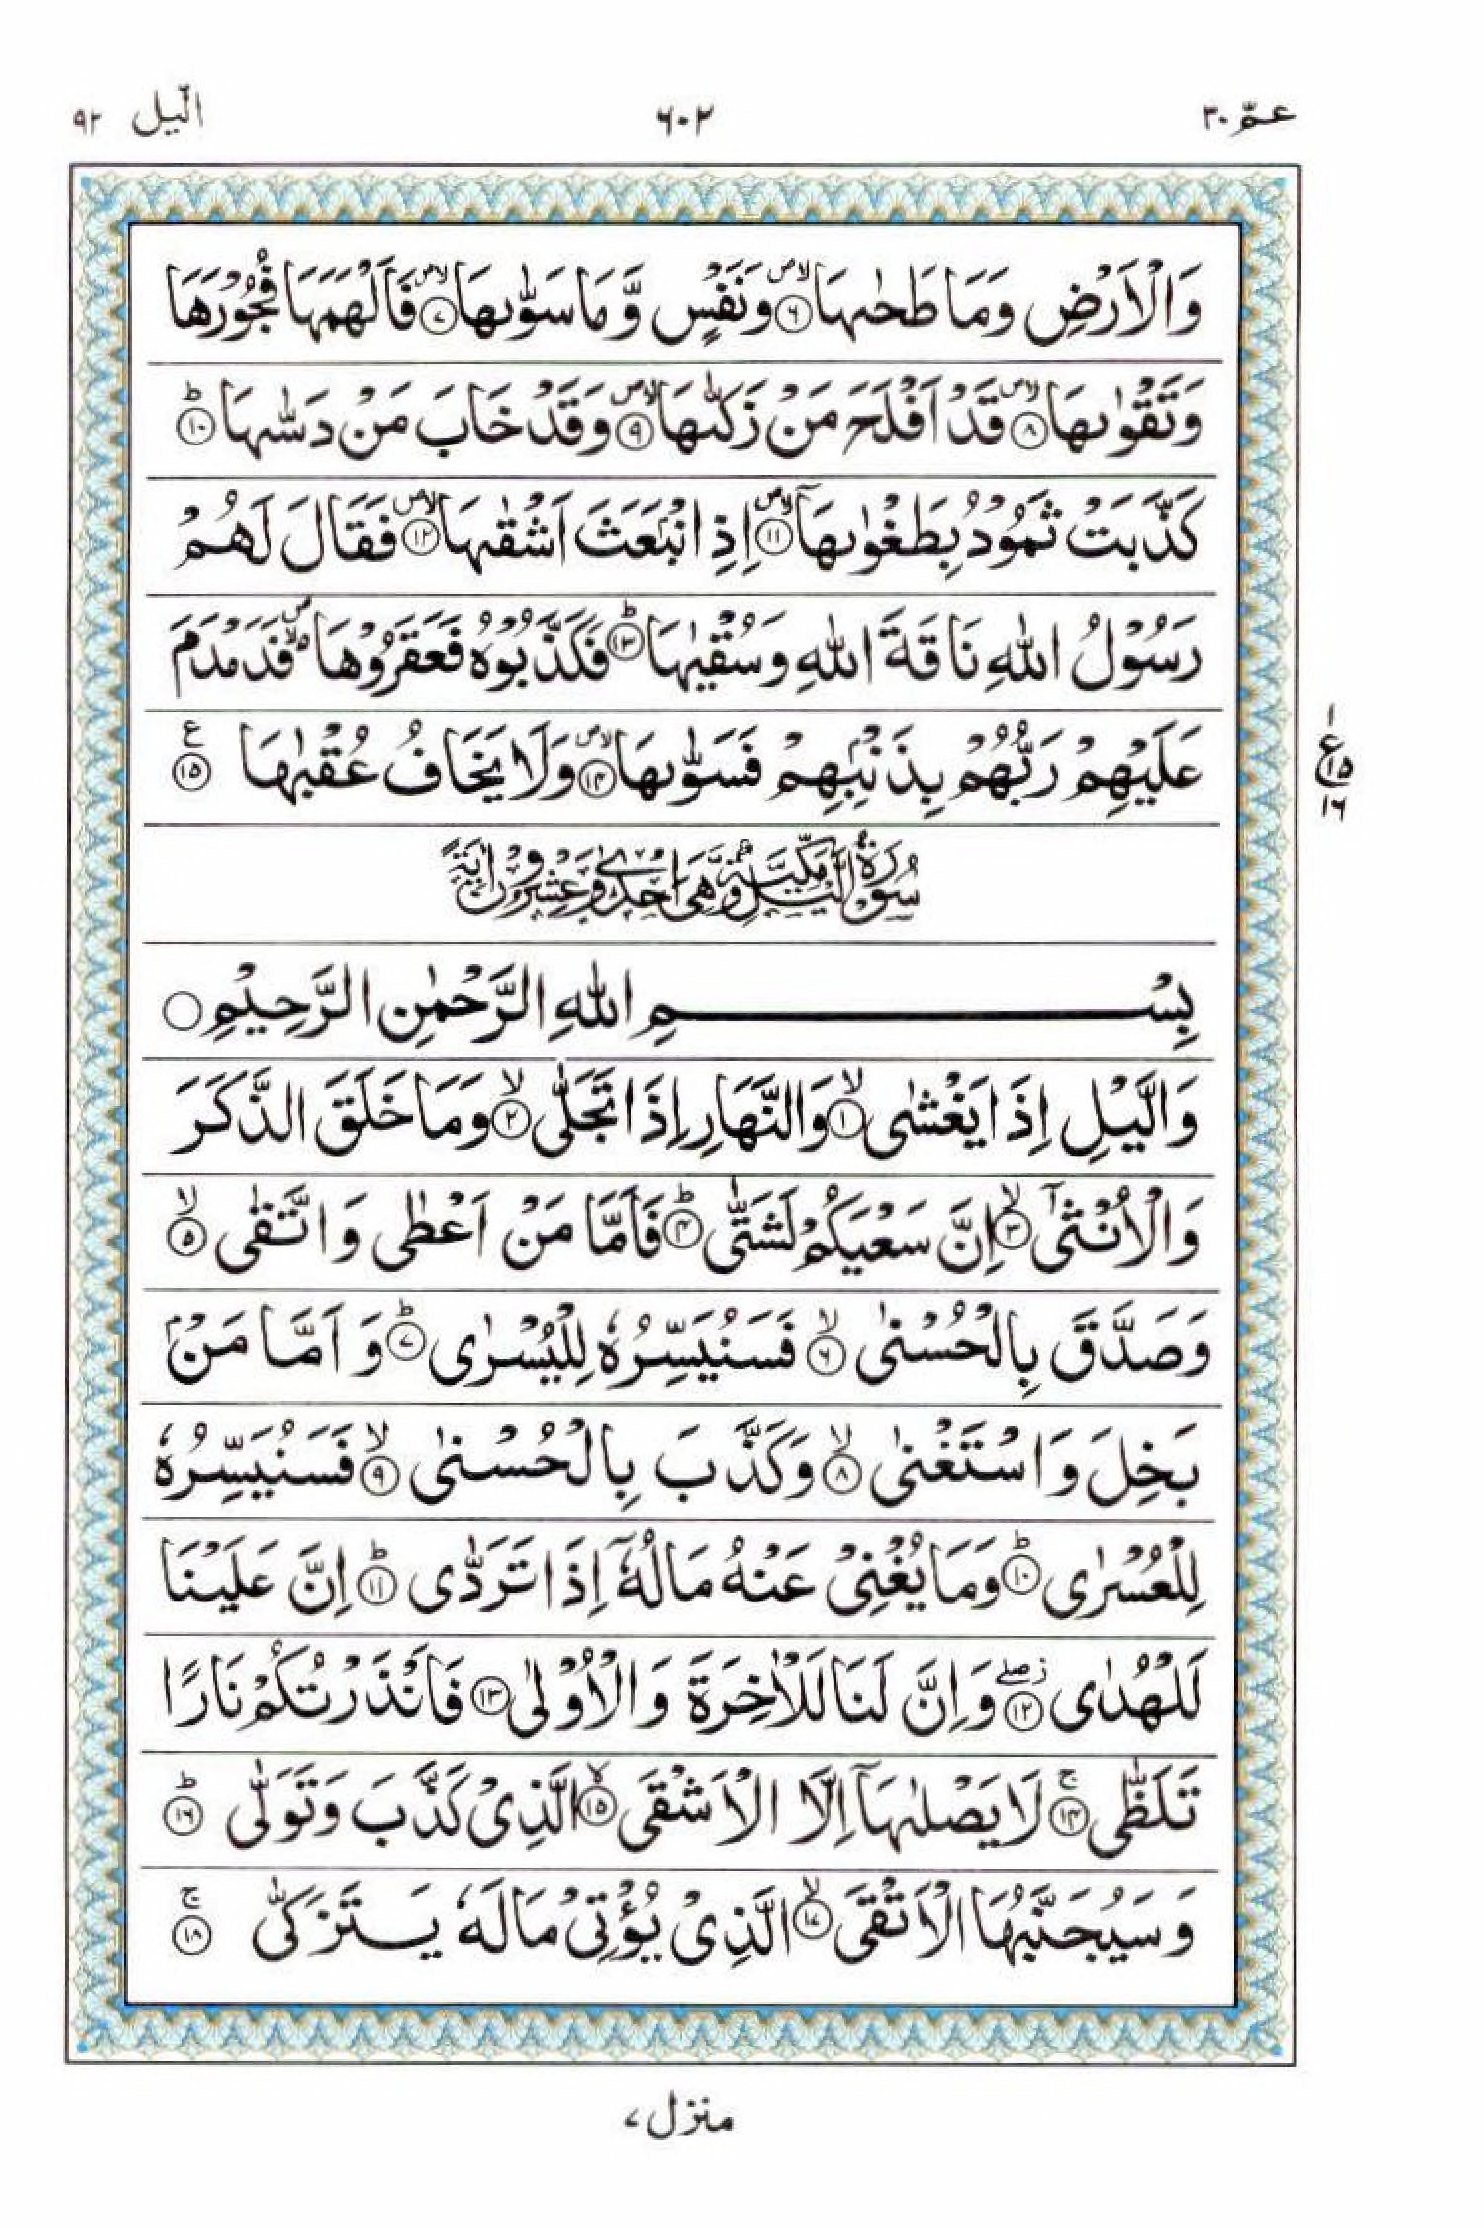 عمّ ٣٠ ٦٠٢ الّيل ٩٢
وَالْاَرْضِ وَمَا طَحٰىهَا ۪ۙ ﴿٦﴾ وَنَفْسٍ وَّمَا سَوّٰىهَا ۪ۙ ﴿٧﴾ فَاَلْهَمَهَا فُجُوْرَهَا
وَتَقْوٰىهَا ۪ۙ ﴿٨﴾ قَدْ اَفْلَحَ مَنْ زَكّٰىهَا ۪ۙ ﴿٩﴾ وَقَدْ خَابَ مَنْ دَسّٰىهَا ؕ ﴿١٠﴾
كَذَّبَتْ ثَمُوْدُ بِطَغْوٰىهَاۤ ۪ۙ ﴿١١﴾ اِذِ انْۢبَعَثَ اَشْقٰىهَا ۪ۙ ﴿١٢﴾ فَقَالَ لَهُمْ
رَسُوْلُ اللّٰهِ نَاقَةَ اللّٰهِ وَسُقْيٰهَا ؕ ﴿١٣﴾ فَكَذَّبُوْهُ فَعَقَرُوْهَا ۪ۙ فَدَمْدَمَ
عَلَيْهِمْ رَبُّهُمْ بِذَنْۢبِهِمْ فَسَوّٰىهَا ۪ۙ ﴿١٤﴾ وَلَا يَخَافُ عُقْبٰهَا ﴿١٥﴾ ع
١ ع ١٥ ١٦
سُوْرَةُ الَّيْلِ مَكِّيَّةٌ وَّهِيَ اِحْدٰى وَعِشْرُوْنَ اٰيَةً
بِسْمِ اللّٰهِ الرَّحْمٰنِ الرَّحِيْمِ ۝
وَالَّيْلِ اِذَا يَغْشٰى ۙ ﴿١﴾ وَالنَّهَارِ اِذَا تَجَلّٰى ۙ ﴿٢﴾ وَمَا خَلَقَ الذَّكَرَ
وَالْاُنْثٰۤى ۙ ﴿٣﴾ اِنَّ سَعْيَكُمْ لَشَتّٰى ؕ ﴿٤﴾ فَاَمَّا مَنْ اَعْطٰى وَاتَّقٰى ۙ ﴿٥﴾
وَصَدَّقَ بِالْحُسْنٰى ۙ ﴿٦﴾ فَسَنُيَسِّرُهٗ لِلْيُسْرٰى ؕ ﴿٧﴾ وَاَمَّا مَنْۢ
بَخِلَ وَاسْتَغْنٰى ۙ ﴿٨﴾ وَكَذَّبَ بِالْحُسْنٰى ۙ ﴿٩﴾ فَسَنُيَسِّرُهٗ
لِلْعُسْرٰى ؕ ﴿١٠﴾ وَمَا يُغْنِيْ عَنْهُ مَالُهٗۤ اِذَا تَرَدّٰى ؕ ﴿١١﴾ اِنَّ عَلَيْنَا
لَلْهُدٰى ۖز ﴿١٢﴾ وَاِنَّ لَنَا لَلْاٰخِرَةَ وَالْاُوْلٰى ﴿١٣﴾ فَاَنْذَرْتُكُمْ نَارًا
تَلَظّٰى ۚ ﴿١٤﴾ لَا يَصْلٰىهَاۤ اِلَّا الْاَشْقَى ۙ ﴿١٥﴾ الَّذِيْ كَذَّبَ وَتَوَلّٰى ؕ ﴿١٦﴾
وَسَيُجَنَّبُهَا الْاَتْقَى ۙ ﴿١٧﴾ الَّذِيْ يُؤْتِيْ مَالَهٗ يَتَزَكّٰى ۚ ﴿١٨﴾
منزل ٧